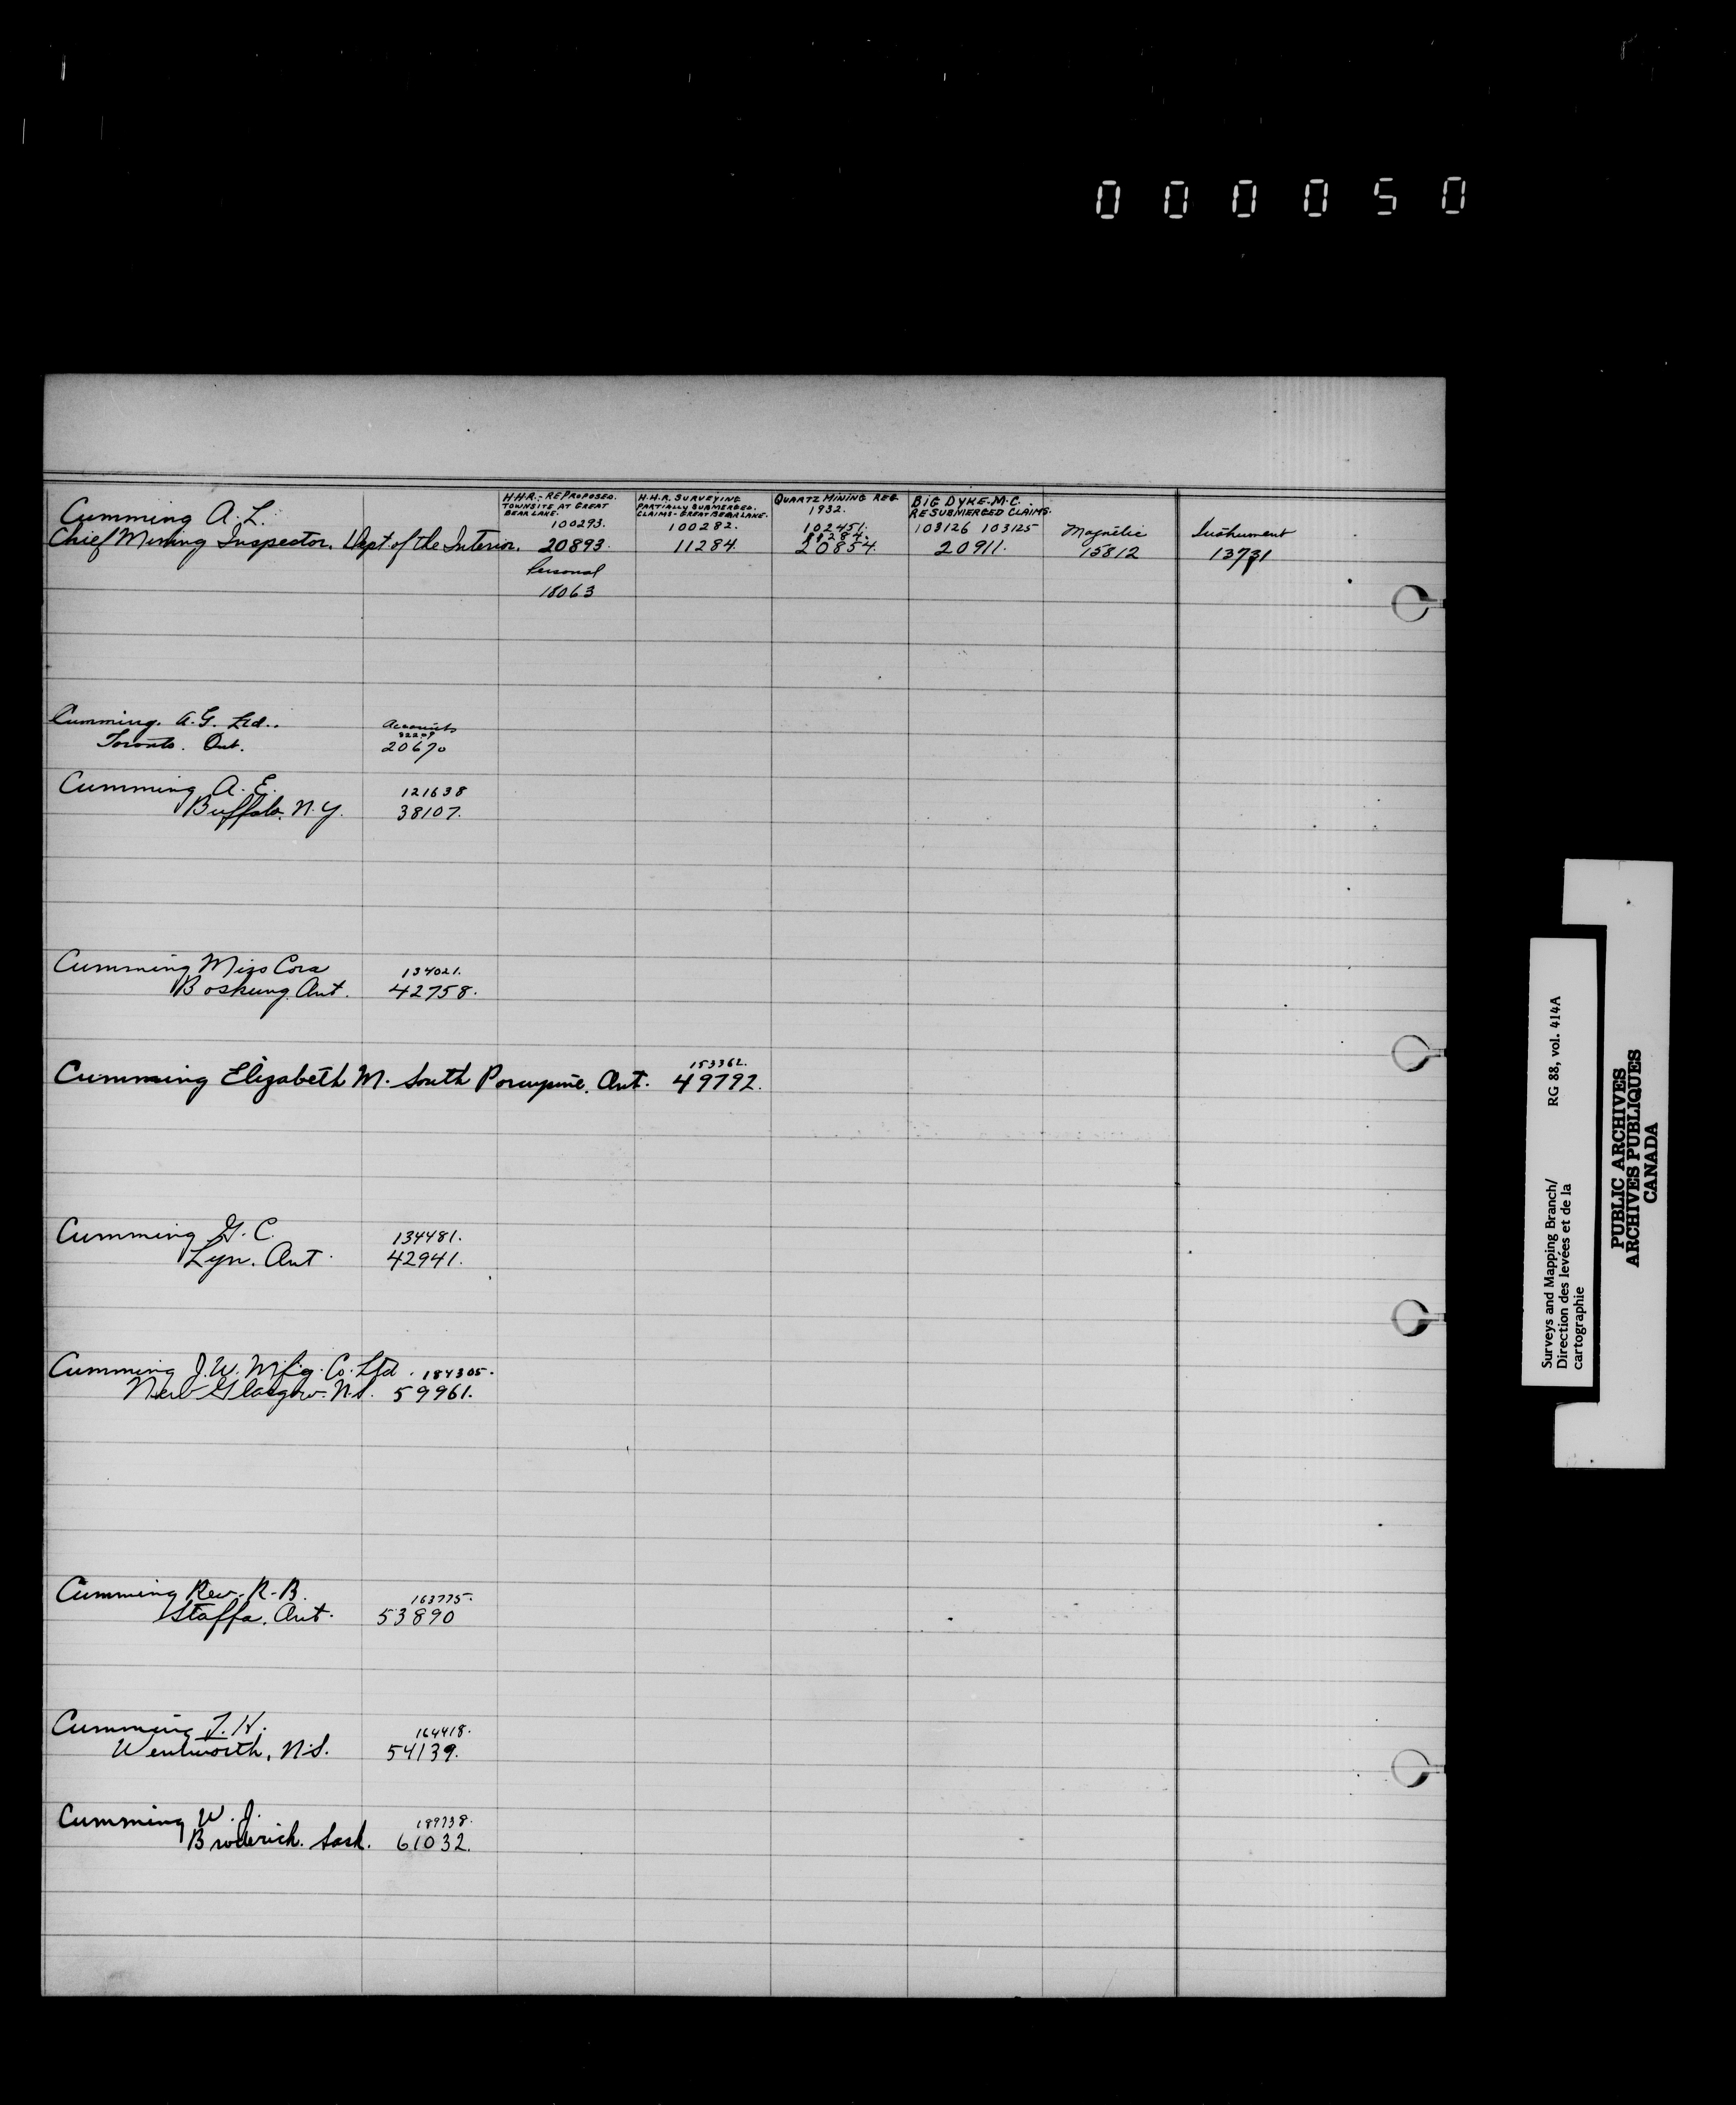 0 0 0 0 5 0
Cumming A. L.
Chief Mining Inspector. Dept. of the Interior.
H.H.R. - RE PROPOSED.
TOWNSITE AT GREAT
BEAR LAKE.
100293.
20893.
Personal
18063
H.H.R. SURVEYING
PARTIALLY SUBMERGED.
CLAIMS - GREAT BEAR LAKE.
100282.
11284.
QUARTZ MINING REG
1932.
102451.
11284.
20854.
BIG DYKE. M.C.
RE SUBMERGED CLAIMS.
103126 103125
20911.
Magnetic
15812
Instrument
13731
Cumming. A. G. Ltd..
Toronto. Ont.
Accounts
20670
Cumming A. E.
Buffalo. N.Y.
121638
38107.
Cumming Miss Cora
Boskung Ont.
134021.
42758.
Cumming Elizabeth M. South Porcupine. Ont.
153362.
49792.
Cumming G. C.
Lyn. Ont.
134481.
42941.
Cumming J. W. Mfg. Co. Ltd. 184305.
New Glasgow. N.S. 59961.
Cumming Rev. R. B.
Staffa. Ont.
163775.
53890
Cumming T. H.
Wentworth, N.S.
164418.
54139.
Cumming W. J.
Broderick. Sask.
189738.
61032.
Surveys and Mapping Branch/
Direction des levées et de la
cartographie
RG 88, vol. 414A
PUBLIC ARCHIVES
ARCHIVES PUBLIQUES
CANADA